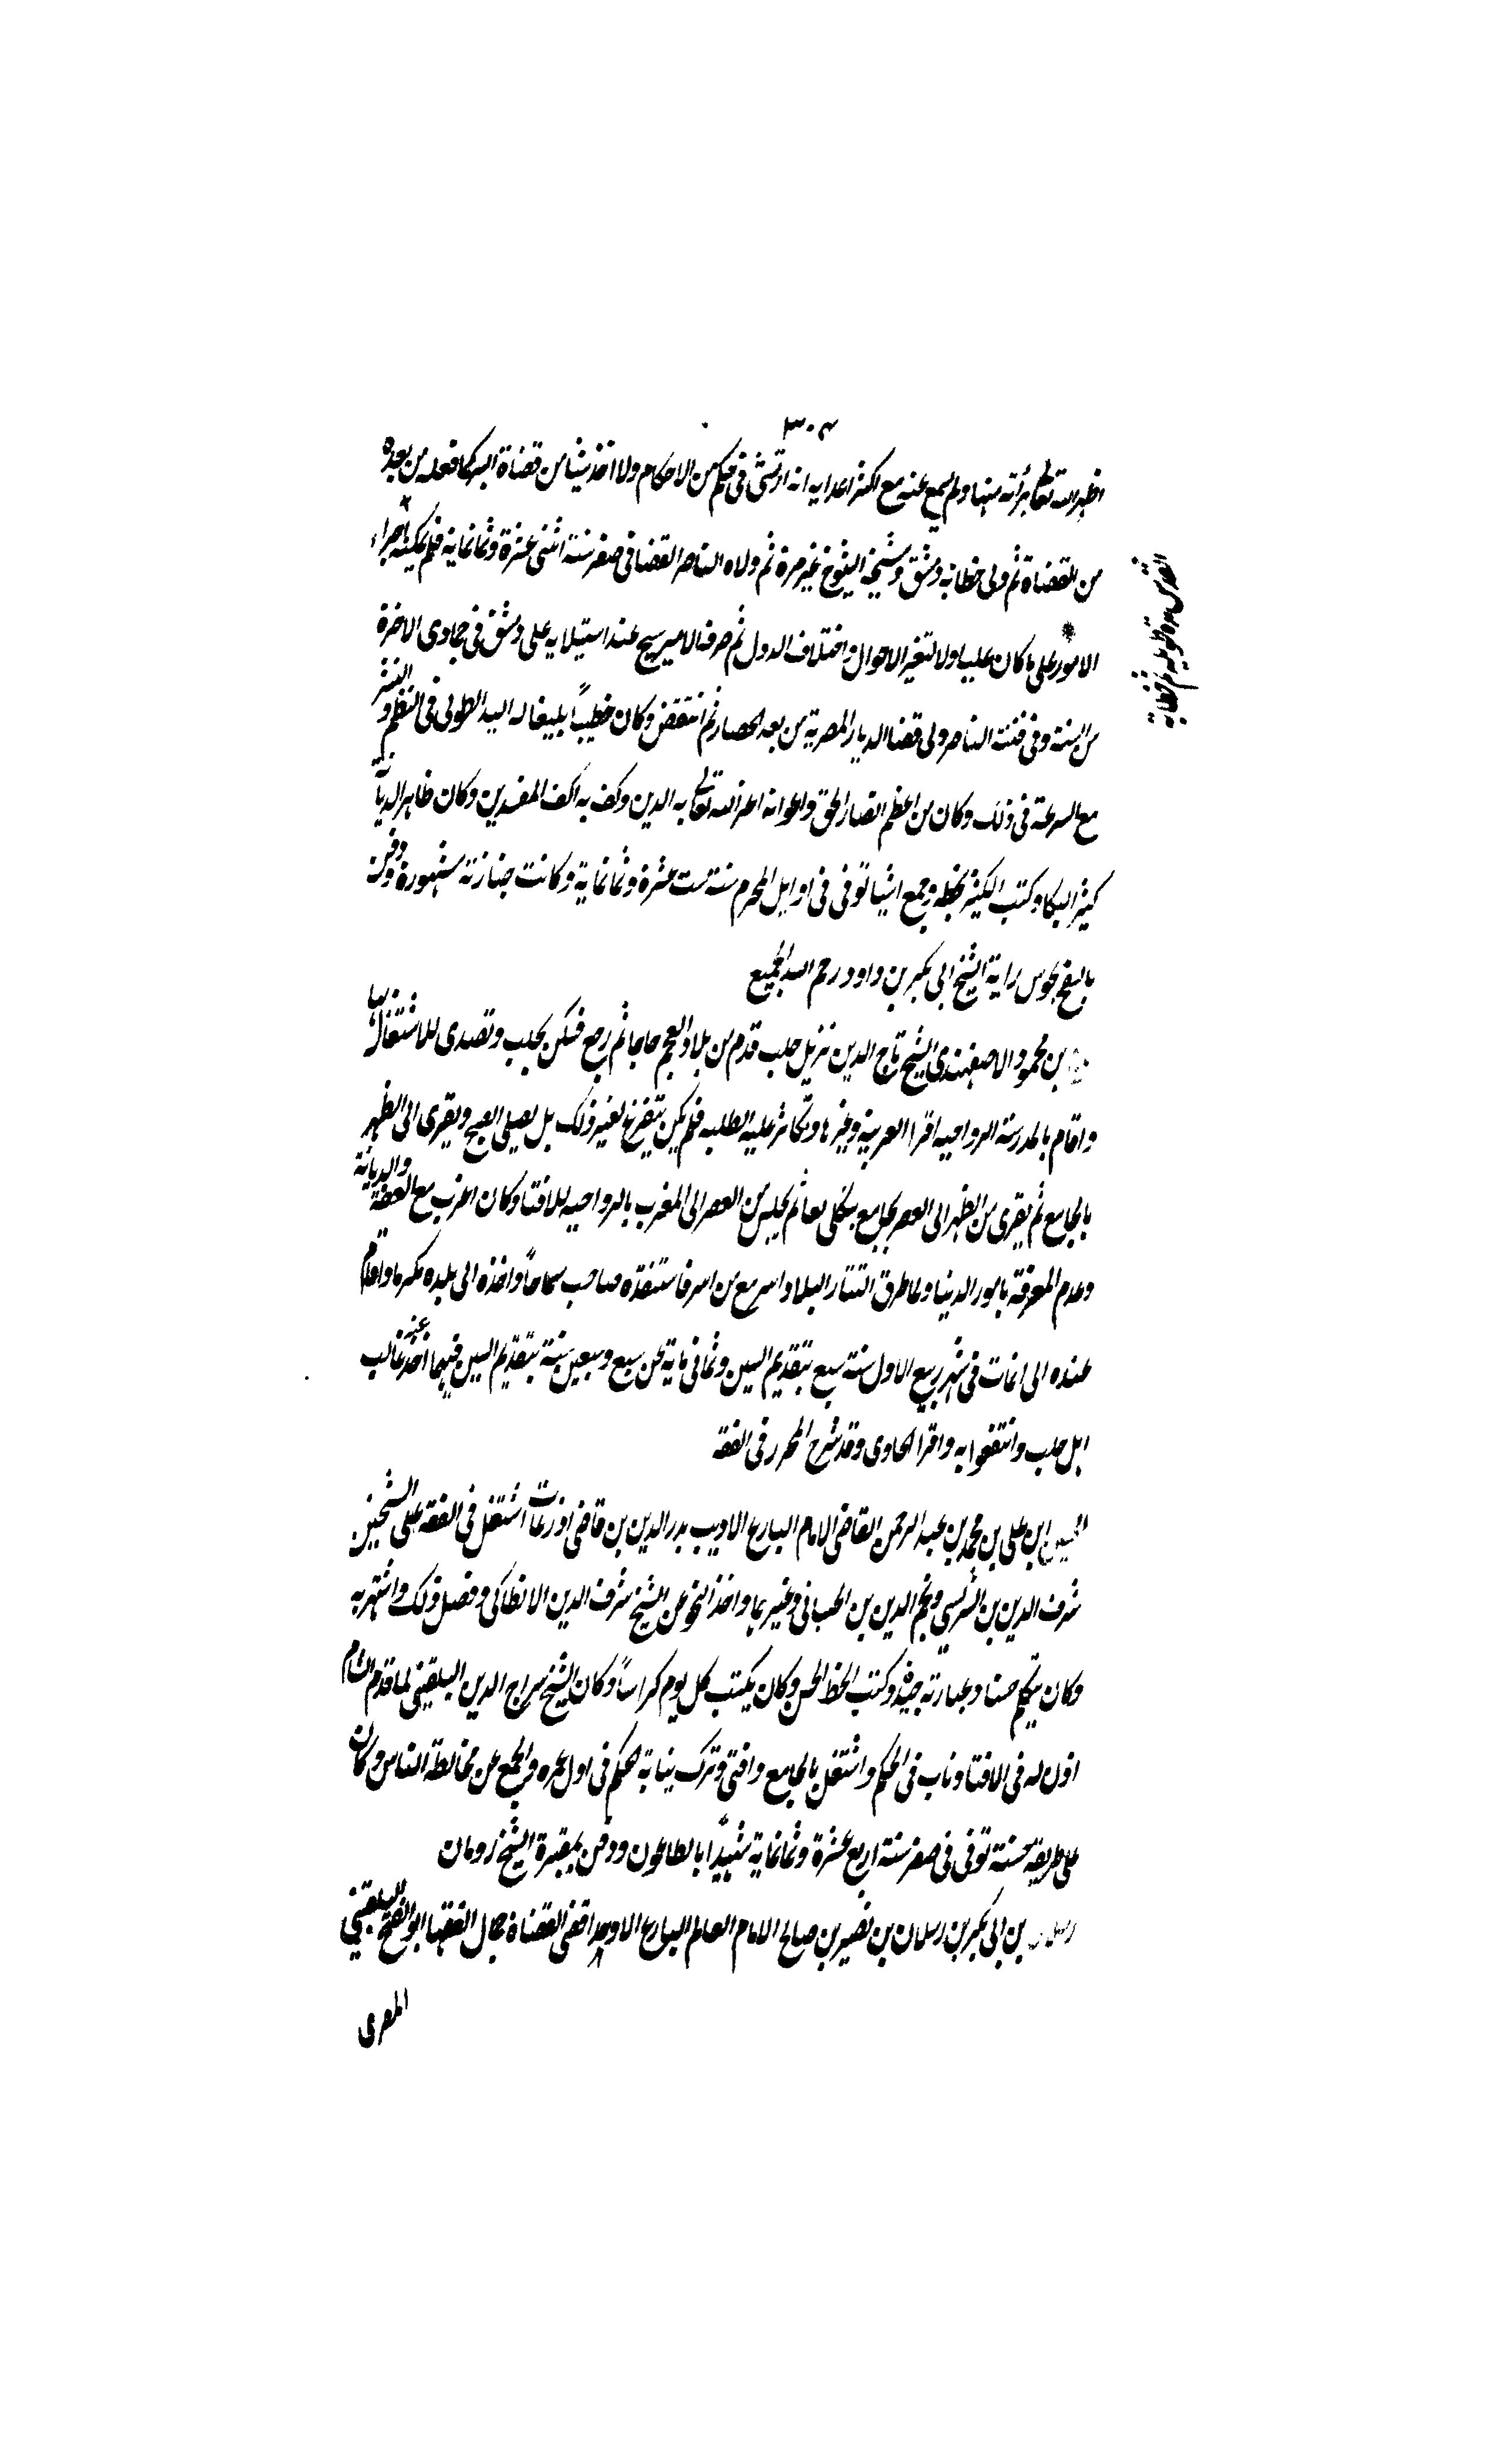 ٣٠٣
اظهر الله تعالى برأته منها ولم يسمع عنه مع اكثر اعدايه انه ارتشى في حكم من الاحكام ولا اخذ شيئا من قضاة البر كما فعله من بعده
من القضاة ثم ولى خطابة دمشق ومشيخة الشيوخ غير مرة ثم ولاه الناصر القضا في صفر سنة اثنتى عشرة وثمانماية فلم يمكنه اجراء
الامور على ما كان عليه اولا لتغير الاحوال واختلاف الدول ثم صرفه الامير شيخ عند استيلايه على دمشق في جمادى الاخرة
من السنة وفي فتنة الناصر ولى قضا الديار المصرية من بعد الحصار ثم انتقض وكان خطيبًا بليغا له اليد الطولى في النظم والنثر
مع السرعة في ذلك وكان من اعظم انصار الحق واعوانه اعز الله تعالى به الدين وكف به اكف المفسدين وكان ظاهر الديانة
كثير البكا وكتب الكثير بخطه وجمع اشيا توفى في اوايل المحرم سنة ست عشرة وثمانماية وكانت جنازته مشهورة ودفن
بالسفح بحوش زاية الشيخ ابى بكر بن داود رحم الله الجميع
بن محمود الاصفهندى الشيخ تاج الدين نزيل حلب قدم من بلاد العجم حاجا ثم رجع فسكن بحلب وتصدى للاشتغال بها
واقام بالمدرسة الرواحيه اقرا العربية وغيرها وتكاثر عليه الطلبه فلم يكن يتفرغ لغير ذلك بل يصلى الصبح ويقرى الى الظهر
بالجامع ثم يقرى من الظهر الى العصر بجامع منكلى بغا ثم يجلس من العصر الى المغرب بالرواحيه للافتا وكان اعزب مع العفة والديانة
وعدم المعرفة بامور الدنيا ولما طرق التتار البلاد اسر مع من اسر فاستنقذه صاحب سماخا واخذه الى بلده مكرما واقام
عنده الى ان مات في شهر ربيع الاول سنة سبع بتقديم السين وثمانى ماية عن سبع وسبعين سنة بتقديم السين فيهما اخذ عنه غالب
اهل حلب وانتفعوا به واقرا الحاوى وقد شرح المحرر في الفقه
الحسين ابن على بن محمد بن عبد الرحمن القاضى الامام البارع الاديب بدر الدين بن قاضى اذرعات اشتغل في الفقه على الشيخين
شرف الدين بن الشريشى ونجم الدين بن الجبابى وغيرهما واخذ النحو عن الشيخ شرف الدين الانطاكى وفضل في ذلك واشتهر به
وكان يتكلم حسنا وعبارته جيدة وكتب الخط الحسن وكان يكتب كل يوم كراسًا وكان الشيخ سراج الدين البلقينى لما قدم الشام
اذن له في الافتا وناب في الحكم واشتغل بالجامع وافتى وترك نيابة الحكم في اول عمره وانجمع عن مخالطة الناس وكان
على طريقة حسنة توفى في صفر سنة اربع عشرة وثمانماية شهيدًا بالطاعون ودفن بمقبرة الشيخ رسلان
رسلان بن ابى بكر بن رسلان بن نصير بن صالح الامام العالم البارع الاوحد اقضى القضاة جمال الفقها ابو الفتح البلقينى
المصرى
القدس مدة طويلة ثم خطابة